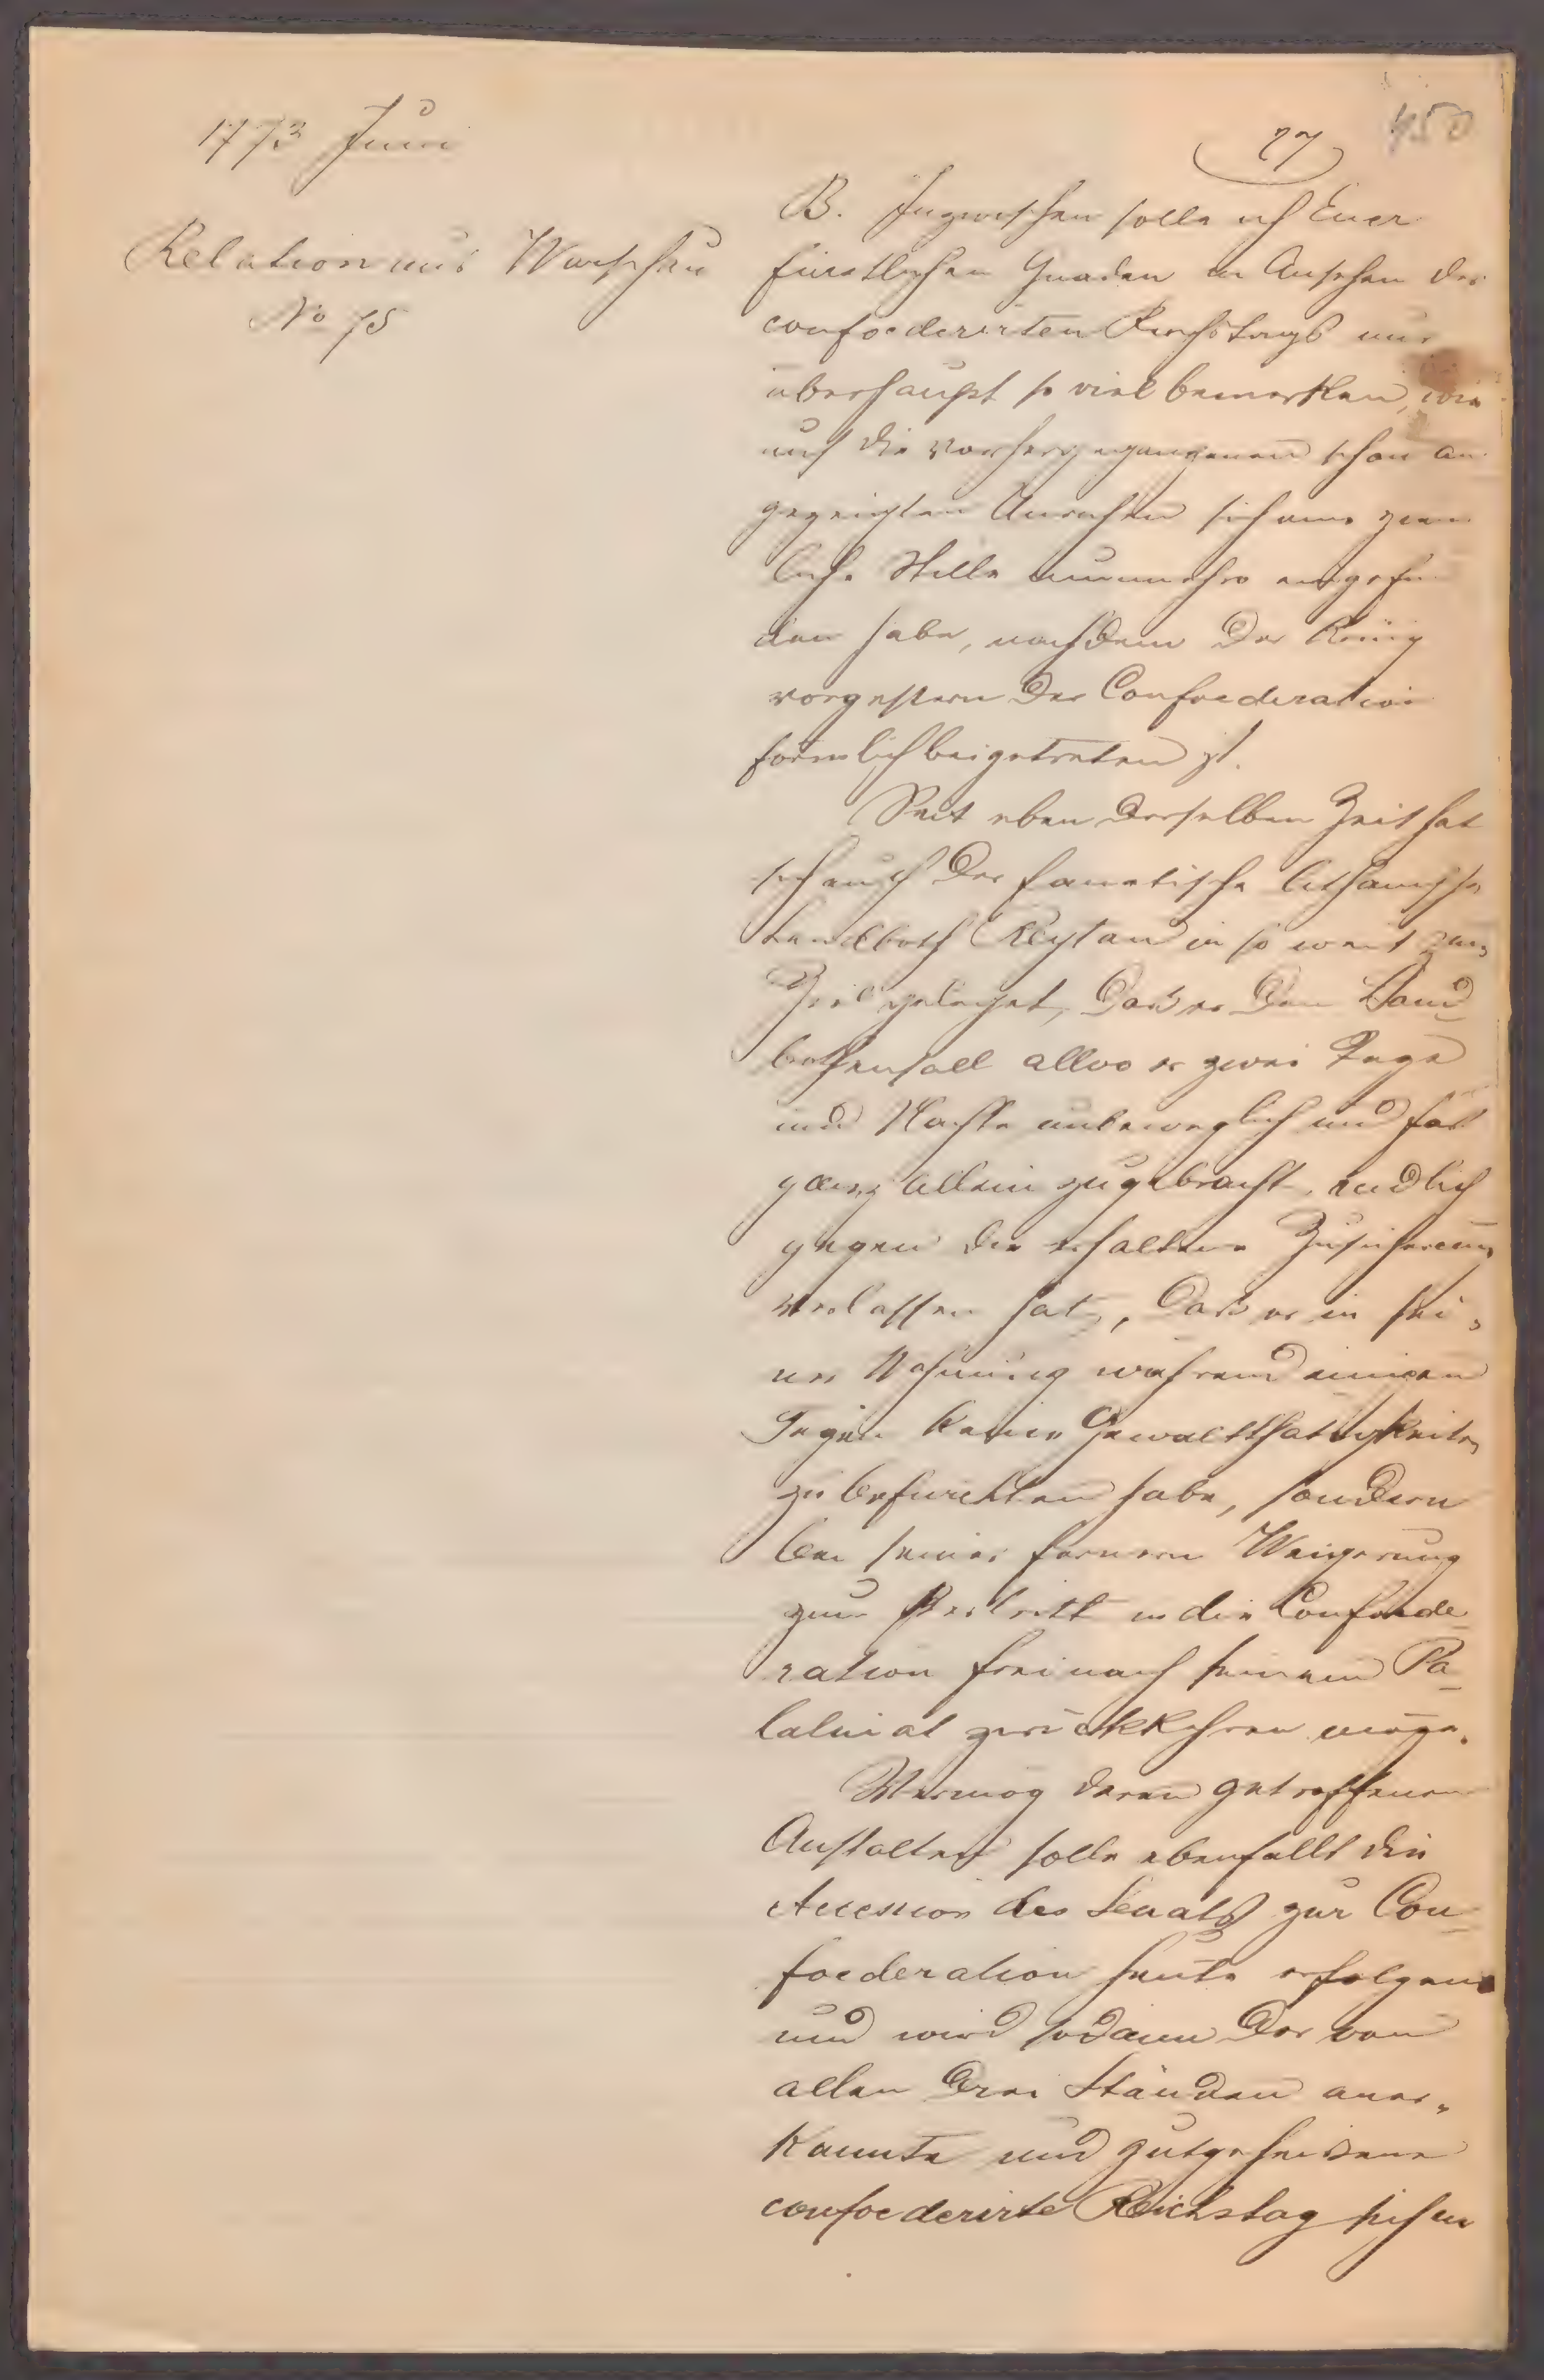 450
1773 Juni
27
Relation aus Warschau
No 75
B. Inzwischen solle ich Euer
fürstlichen Gnaden in Ansehen des
confoederirten Reichstags nur
überhaupt so viel bemerken, wie
auf die vorhergegangenen schon an
gezeigten Unruhen sich eine ziem
liche Stille nunmehro eingefun
den habe, nachdem der König
vorgestern der Confoederation
förmlich beigetreten ist.
Seit eben derselben Zeit hat
sich auch der fanatische lithauische
Landboth Reytan in so weit zum
Ziel geleget, daß er den Land
bothensaal allwo er zwei Tage
und Nächte unbeweglich und fast
ganz allein zugebracht, endlich
gegen die erhaltene Zusicherung
verlassen hat, daß er in sei„
ner Wohnung während einigen
Tagen keine Gewaltthätigkeiten
zu befürchten habe, sondern
bei seiner fernern Weigerung
zum Beitritt in die Confoede
ration frei nach seinem Pa
latinat zurückkehren möge.
Vermög deren getroffenen
Anstalten solle ebenfalls die
Accession des Senats zur Con
foederation heute erfolgen
und wird sodann der von
allen drei Ständen aner„
kannte und gutgeheißene
confoederirte Reichstag